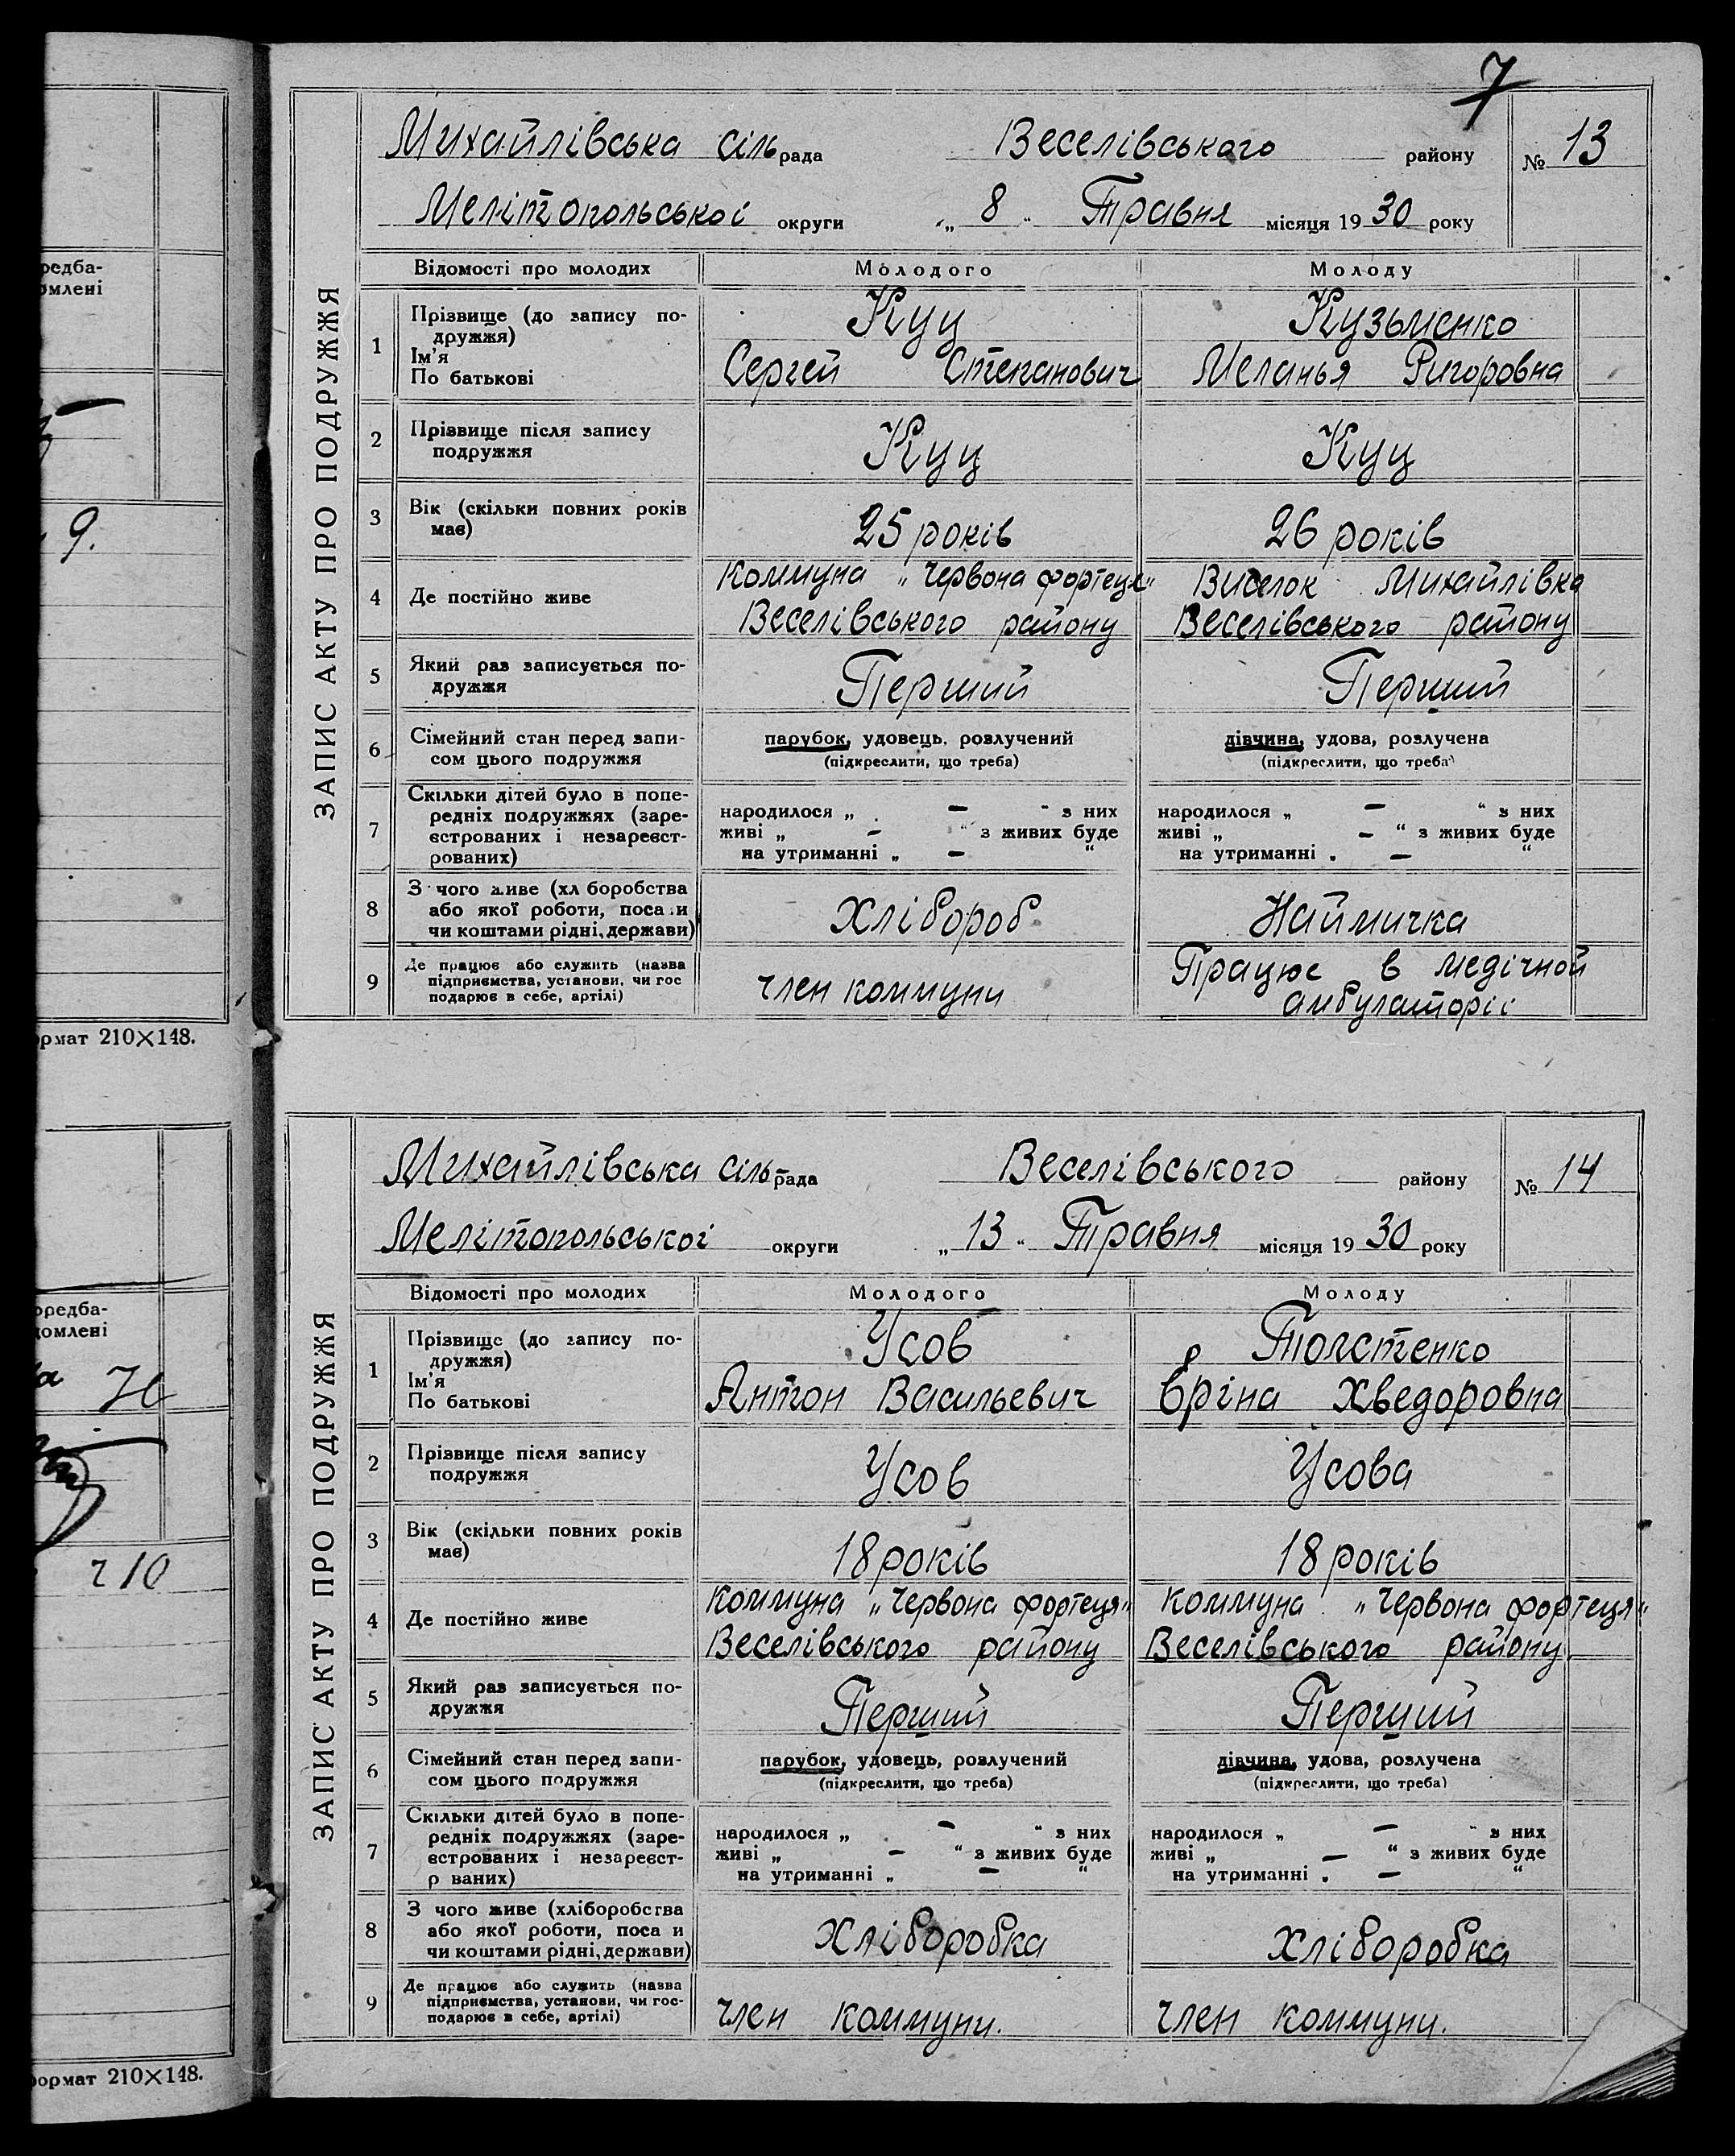 7
Михайлівська сільрада Веселівського району № 13
Мелітопольськоі округи „ 8 “ Травня місяця 1930 року
ЗАПИС АКТУ ПРО ПОДРУЖЖЯ
Відомості про молодих Молодого Молоду
1 Прізвище (до запису по-
дружжя)
Ім'я
По батькові
Куц Кузьменко
Сергей Степанович Меланья Ригоровна
2 Прізвище після запису
подружжя
Куц Куц
3 Вік (скільки повних років
має)
25 років 26 років
4 Де постійно живе
Коммуна „Червона фортеця“ Виселок Михайлівка
Веселівського району Веселівського району
5 Який раз записується по-
дружжя
Перший Перший
6 Сімейний стан перед запи-
сом цього подружжя
парубок, удовець, розлучений дівчина, удова, розлучена
(підкреслити, що треба) (підкреслити, що треба)
7 Скільки дітей було в попе-
редніх подружжях (заре-
єстрованих і незареєст-
рованих)
народилося „ — “ з них народилося „ — “ з них
живі „ — “ з живих буде живі „ — “ з живих буде
на утриманні „ — “ на утриманні „ — “
8 З чого живе (хл боробства
або якої роботи, поса и
чи коштами рідні, держави)
Хлібороб Наймичка
9 Де працює або служить (назва
підприємства, установи, чи гос
подарює в себе, артілі)
член коммуни Працює в медічной
амбулаторіі
Михайлівська сільрада Веселівського району № 14
Мелітопольскоі округи „ 13 “ Травня місяця 1930 року
ЗАПИС АКТУ ПРО ПОДРУЖЖЯ
Відомості про молодих Молодого Молоду
1 Прізвище (до запису по-
дружжя)
Ім'я
По батькові
Усов Толстенко
Антон Васильевич Єріна Хведоровна
2 Прізвище після запису
подружжя
Усов Усова
3 Вік (скільки повних років
має)
18 років 18 років
4 Де постійно живе
Коммуна „Червона фортеця“ Коммуна „Червона фортеця“
Веселівського району Веселівського району.
5 Який раз записується по-
дружжя
Перший Перший
6 Сімейний стан перед запи-
сом цього подружжя
парубок, удовець, розлучений дівчина, удова, розлучена
(підкреслити, що треба) (підкреслити, що треба)
7 Скільки дітей було в попе-
редніх подружжях (заре-
єстрованих і незареєст-
р ваних)
народилося „ — “ з них народилося „ — “ з них
живі „ — “ з живих буде живі „ — “ з живих буде
на утриманні „ — “ на утриманні „ — “
8 З чого живе (хліборобства
або якої роботи, поса и
чи коштами рідні, держави)
Хліборобка Хліборобка
9 Де працює або служить (назва
підприємства, установи, чи гос-
подарює в себе, артілі)
член коммуни. член коммуни.
редба-
омлені
9.
ормат 210×148.
редба-
домлені
10
ормат 210×148.